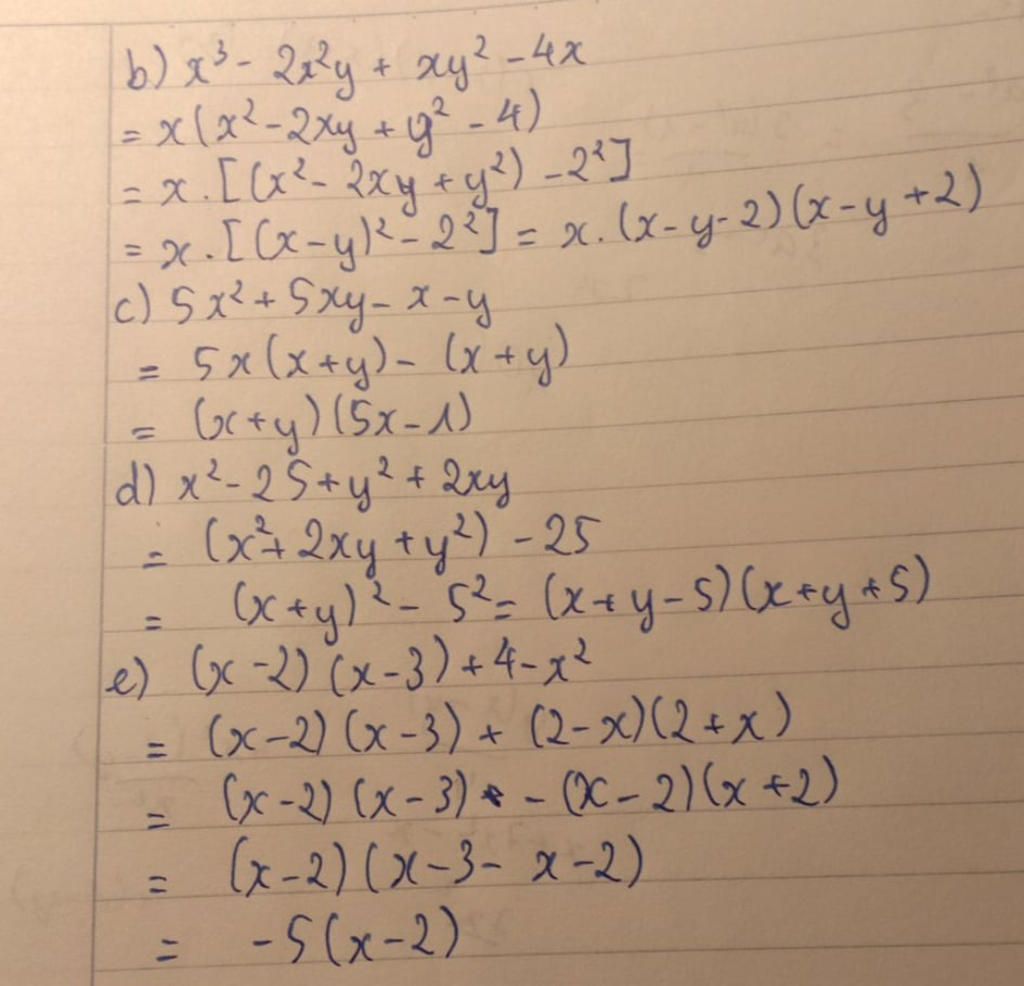 b) x³ - 2x²y + xy² - 4x
= x(x² - 2xy + y² - 4)
= x. [(x² - 2xy + y²) - 2²]
= x. [(x-y)² - 2²] = x. (x-y-2)(x-y+2)
c) 5x² + 5xy - x - y
= 5x(x+y) - (x+y)
= (x+y)(5x-1)
d) x² - 25 + y² + 2xy
= (x² + 2xy + y²) - 25
= (x+y)² - 5² = (x+y-5)(x+y+5)
e) (x-2)(x-3) + 4 - x²
= (x-2)(x-3) + (2-x)(2+x)
= (x-2)(x-3) - (x-2)(x+2)
= (x-2)(x-3-x-2)
= -5(x-2)